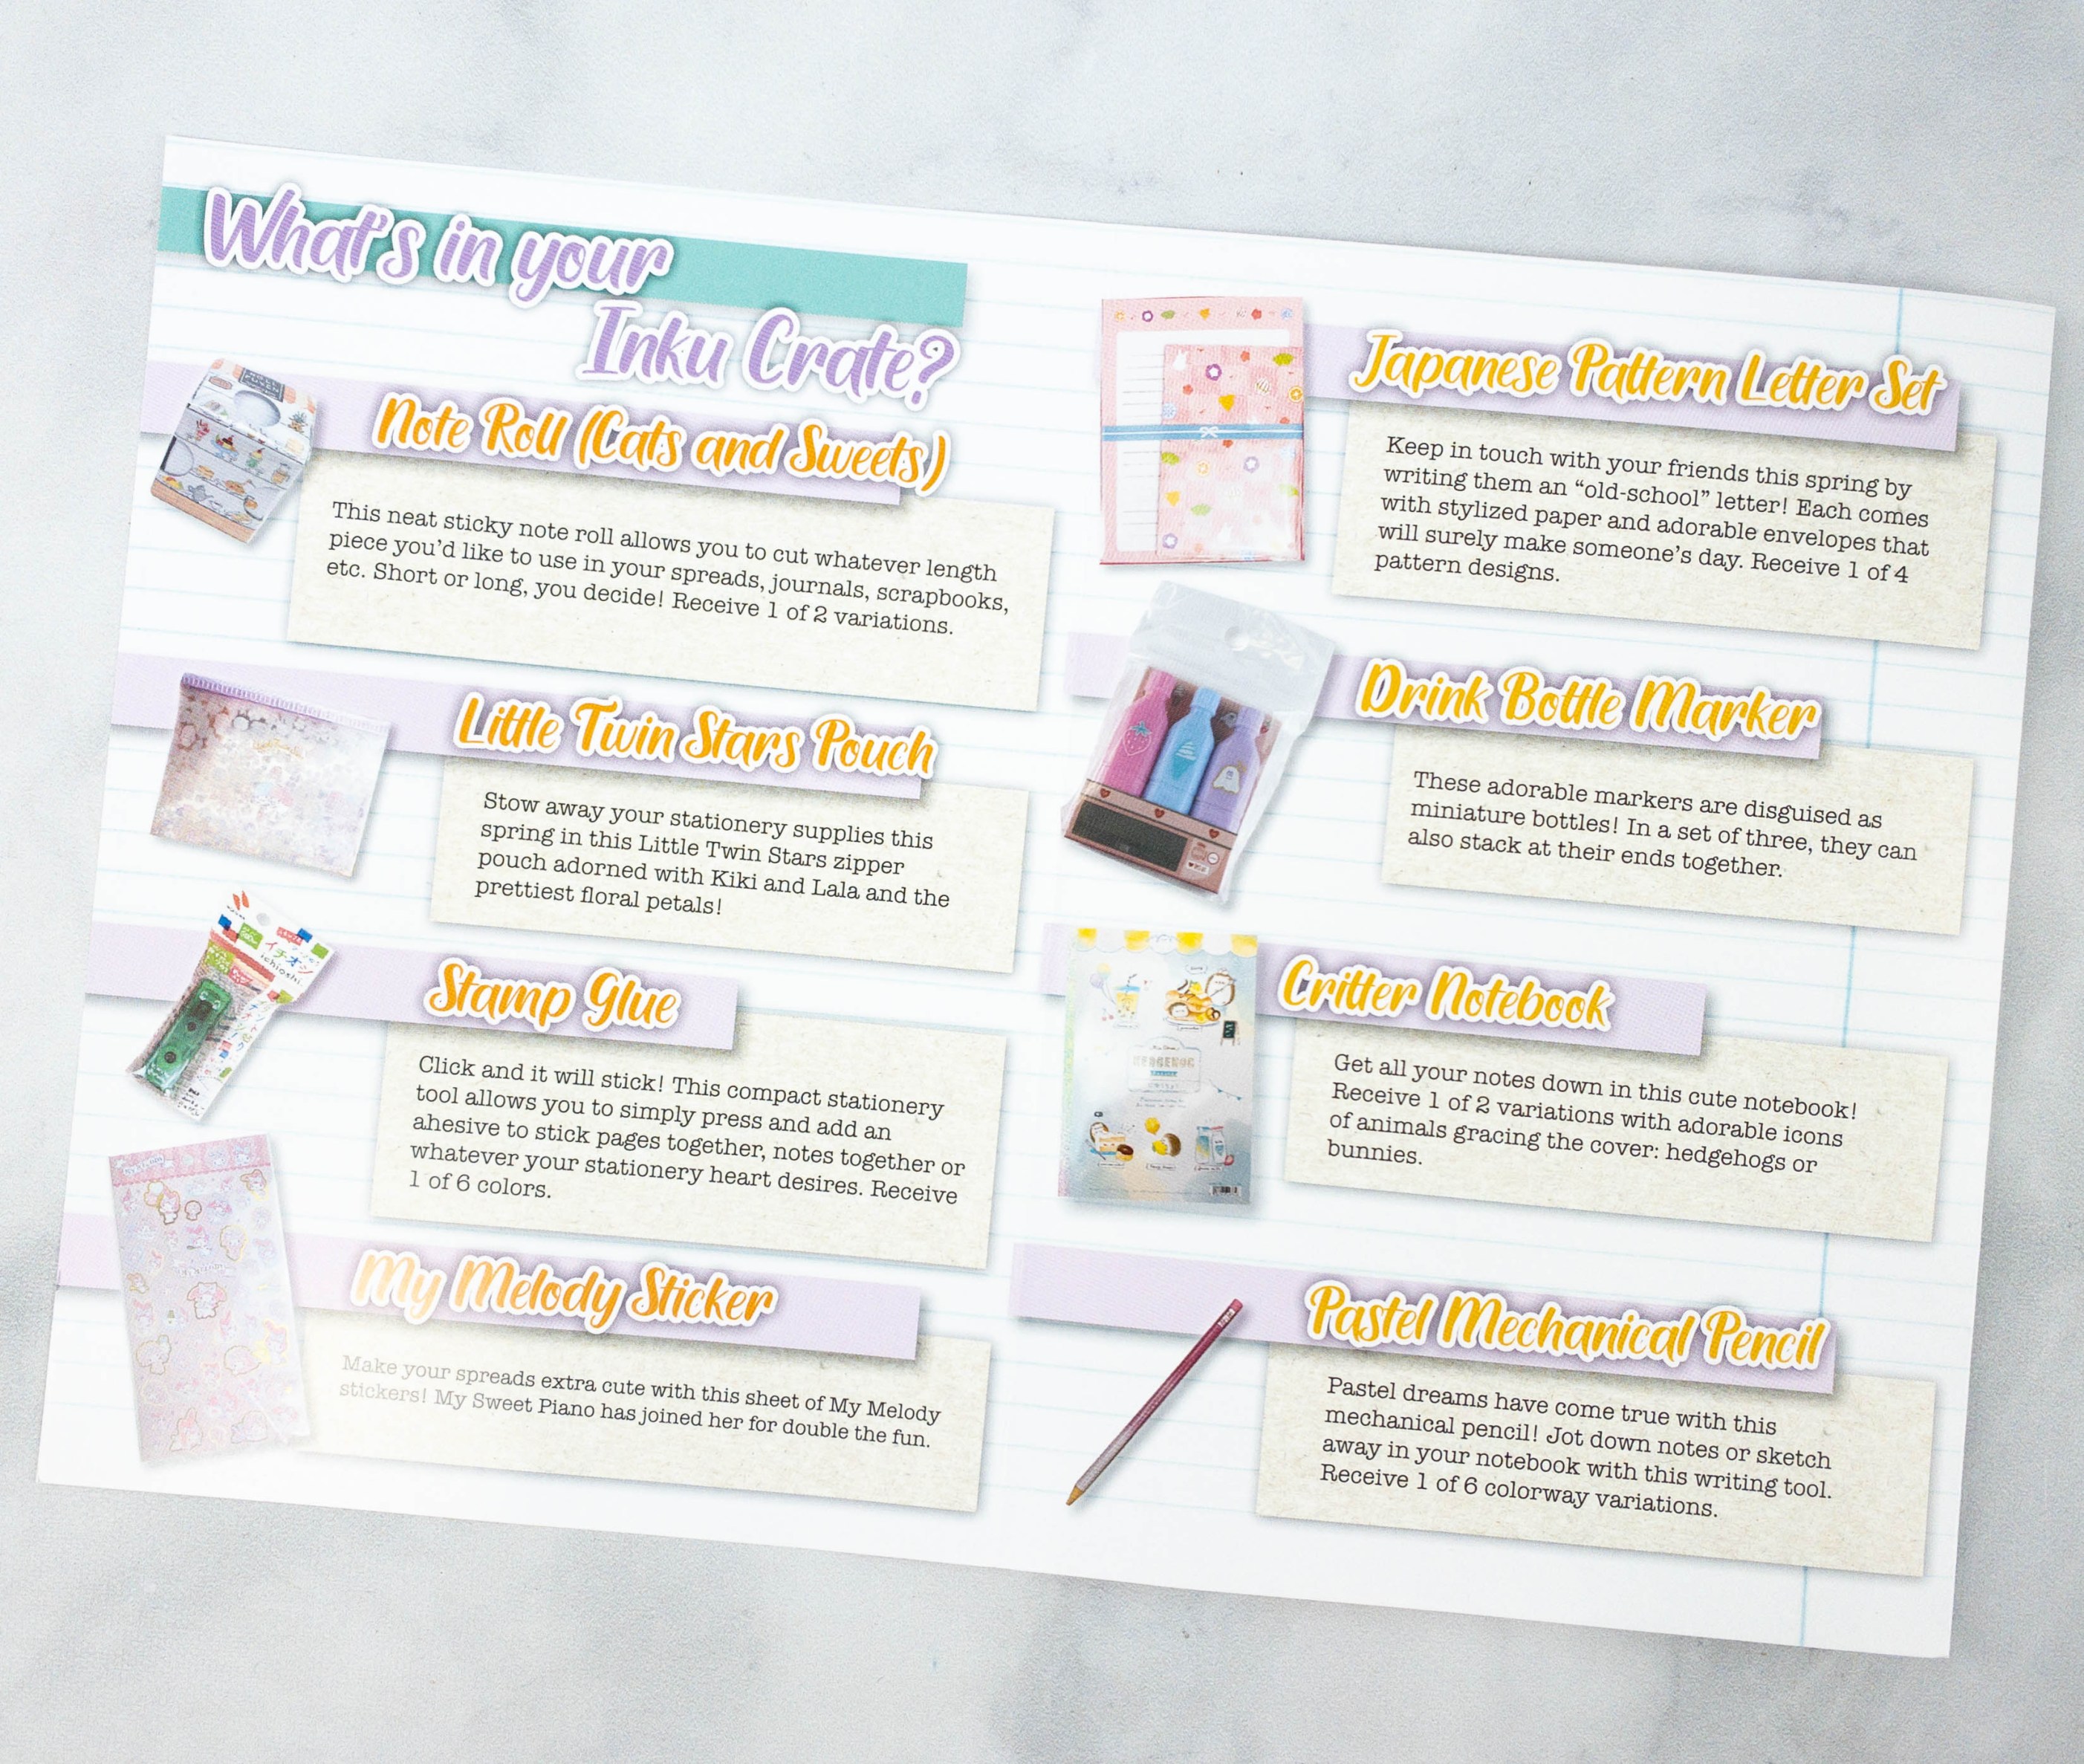 What's in your
Inku Crate?
Note Roll (Cats and Sweets)
This neat sticky note roll allows you to cut whatever length
piece you'd like to use in your spreads, journals, scrapbooks,
etc. Short or long, you decide! Receive 1 of 2 variations.
Little Twin Stars Pouch
Stow away your stationery supplies this
spring in this Little Twin Stars zipper
pouch adorned with Kiki and Lala and the
prettiest floral petals!
イチオシ
ichioshi
Stamp Glue
Click and it will stick! This compact stationery
tool allows you to simply press and add an
ahesive to stick pages together, notes together or
whatever your stationery heart desires. Receive
1 of 6 colors.
My Melody Sticker
Make your spreads extra cute with this sheet of My Melody
stickers! My Sweet Piano has joined her for double the fun.
Japanese Pattern Letter Set
Keep in touch with your friends this spring by
writing them an “old-school” letter! Each comes
with stylized paper and adorable envelopes that
will surely make someone's day. Receive 1 of 4
pattern designs.
Drink Bottle Marker
These adorable markers are disguised as
miniature bottles! In a set of three, they can
also stack at their ends together.
HEDGEHOG
Critter Notebook
Get all your notes down in this cute notebook!
Receive 1 of 2 variations with adorable icons
of animals gracing the cover: hedgehogs or
bunnies.
Pastel Mechanical Pencil
Pastel dreams have come true with this
mechanical pencil! Jot down notes or sketch
away in your notebook with this writing tool.
Receive 1 of 6 colorway variations.